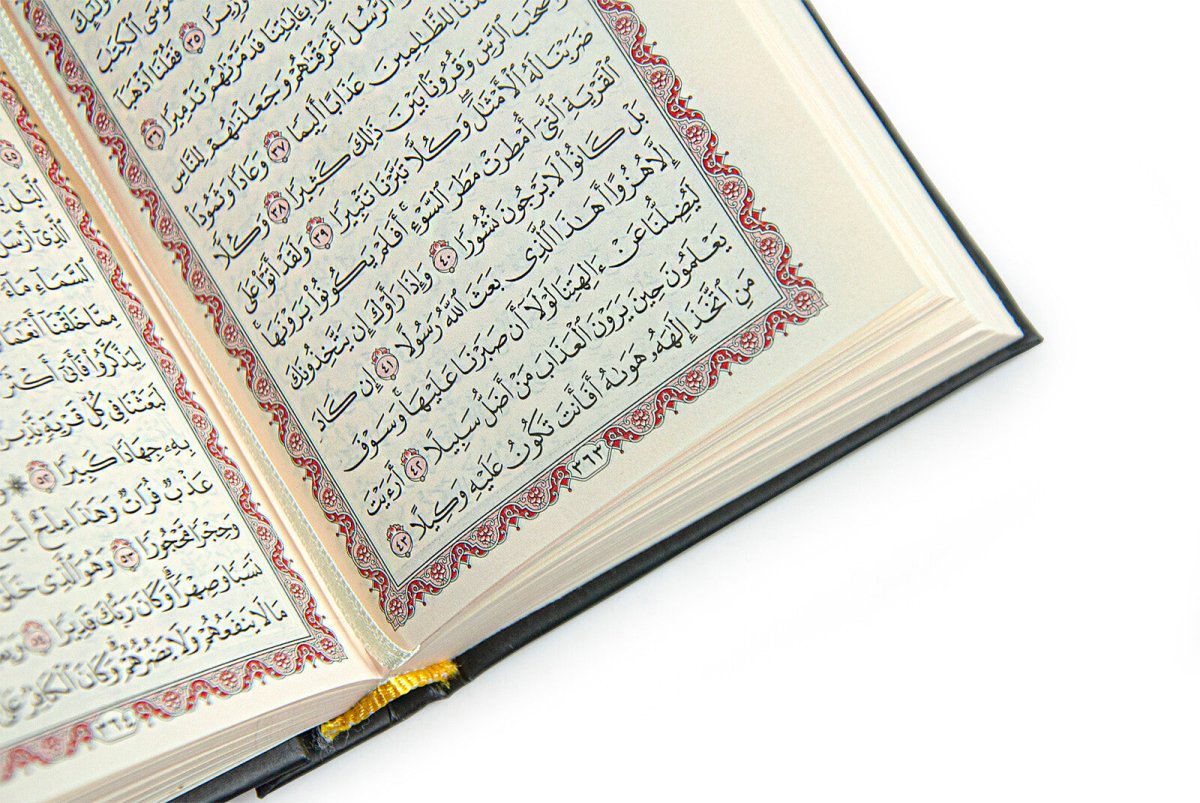 مُوسَى ٱلْكِتَٰبَ
وَزِيرًا ٣٥ فَقُلْنَا ٱذْهَبَا
بِـَٔايَٰتِنَا فَدَمَّرْنَٰهُمْ تَدْمِيرًا ٣٦
ٱلرُّسُلَ أَغْرَقْنَٰهُمْ وَجَعَلْنَٰهُمْ لِلنَّاسِ
لِلظَّٰلِمِينَ عَذَابًا أَلِيمًا ٣٧ وَعَادًا وَثَمُودَا۟
وَأَصْحَٰبَ ٱلرَّسِّ وَقُرُونًۢا بَيْنَ ذَٰلِكَ كَثِيرًا ٣٨ وَكُلًّا
ضَرَبْنَا لَهُ ٱلْأَمْثَٰلَ ۖ وَكُلًّا تَبَّرْنَا تَتْبِيرًا ٣٩ وَلَقَدْ أَتَوْا۟ عَلَى
ٱلْقَرْيَةِ ٱلَّتِىٓ أُمْطِرَتْ مَطَرَ ٱلسَّوْءِ ۚ أَفَلَمْ يَكُونُوا۟ يَرَوْنَهَا ۚ
بَلْ كَانُوا۟ لَا يَرْجُونَ نُشُورًا ٤٠ وَإِذَا رَأَوْكَ إِن يَتَّخِذُونَكَ
إِلَّا هُزُوًا أَهَٰذَا ٱلَّذِى بَعَثَ ٱللَّهُ رَسُولًا ٤١ إِن كَادَ
لَيُضِلُّنَا عَنْ ءَالِهَتِنَا لَوْلَآ أَن صَبَرْنَا عَلَيْهَا ۚ وَسَوْفَ
يَعْلَمُونَ حِينَ يَرَوْنَ ٱلْعَذَابَ مَنْ أَضَلُّ سَبِيلًا ٤٢ أَرَءَيْتَ
مَنِ ٱتَّخَذَ إِلَٰهَهُۥ هَوَىٰهُ أَفَأَنتَ تَكُونُ عَلَيْهِ وَكِيلًا ٤٣
٣٦٣
٤٥
ٱلَّذِىٓ أَرْسَلَ
ٱلسَّمَآءِ مَآءً
مِمَّا خَلَقْنَآ
لِيَذَّكَّرُوا۟ فَأَبَىٰٓ أَكْثَرُ
لَبَعَثْنَا فِى كُلِّ قَرْيَةٍ نَّذِيرًا
بِهِۦ جِهَادًا كَبِيرًا ٥٢ ۞
عَذْبٌ فُرَاتٌ وَهَٰذَا مِلْحٌ
وَحِجْرًا مَّحْجُورًا ٥٣ وَهُوَ ٱلَّذِى خَلَقَ
نَسَبًا وَصِهْرًا ۗ وَكَانَ رَبُّكَ قَدِيرًا ٥٤
مَا لَا يَنفَعُهُمْ وَلَا يَضُرُّهُمْ ۗ وَكَانَ ٱلْكَافِرُ عَلَىٰ
٣٦٤